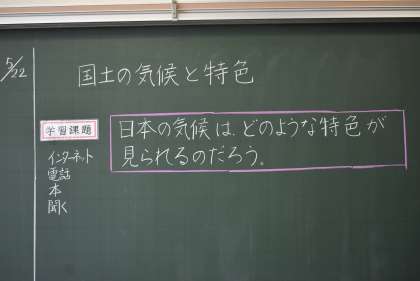 5/22
国土の気候と特色
学習課題
日本の気候は、どのような特色が
見られるのだろう。
インターネット
電話
本
聞く